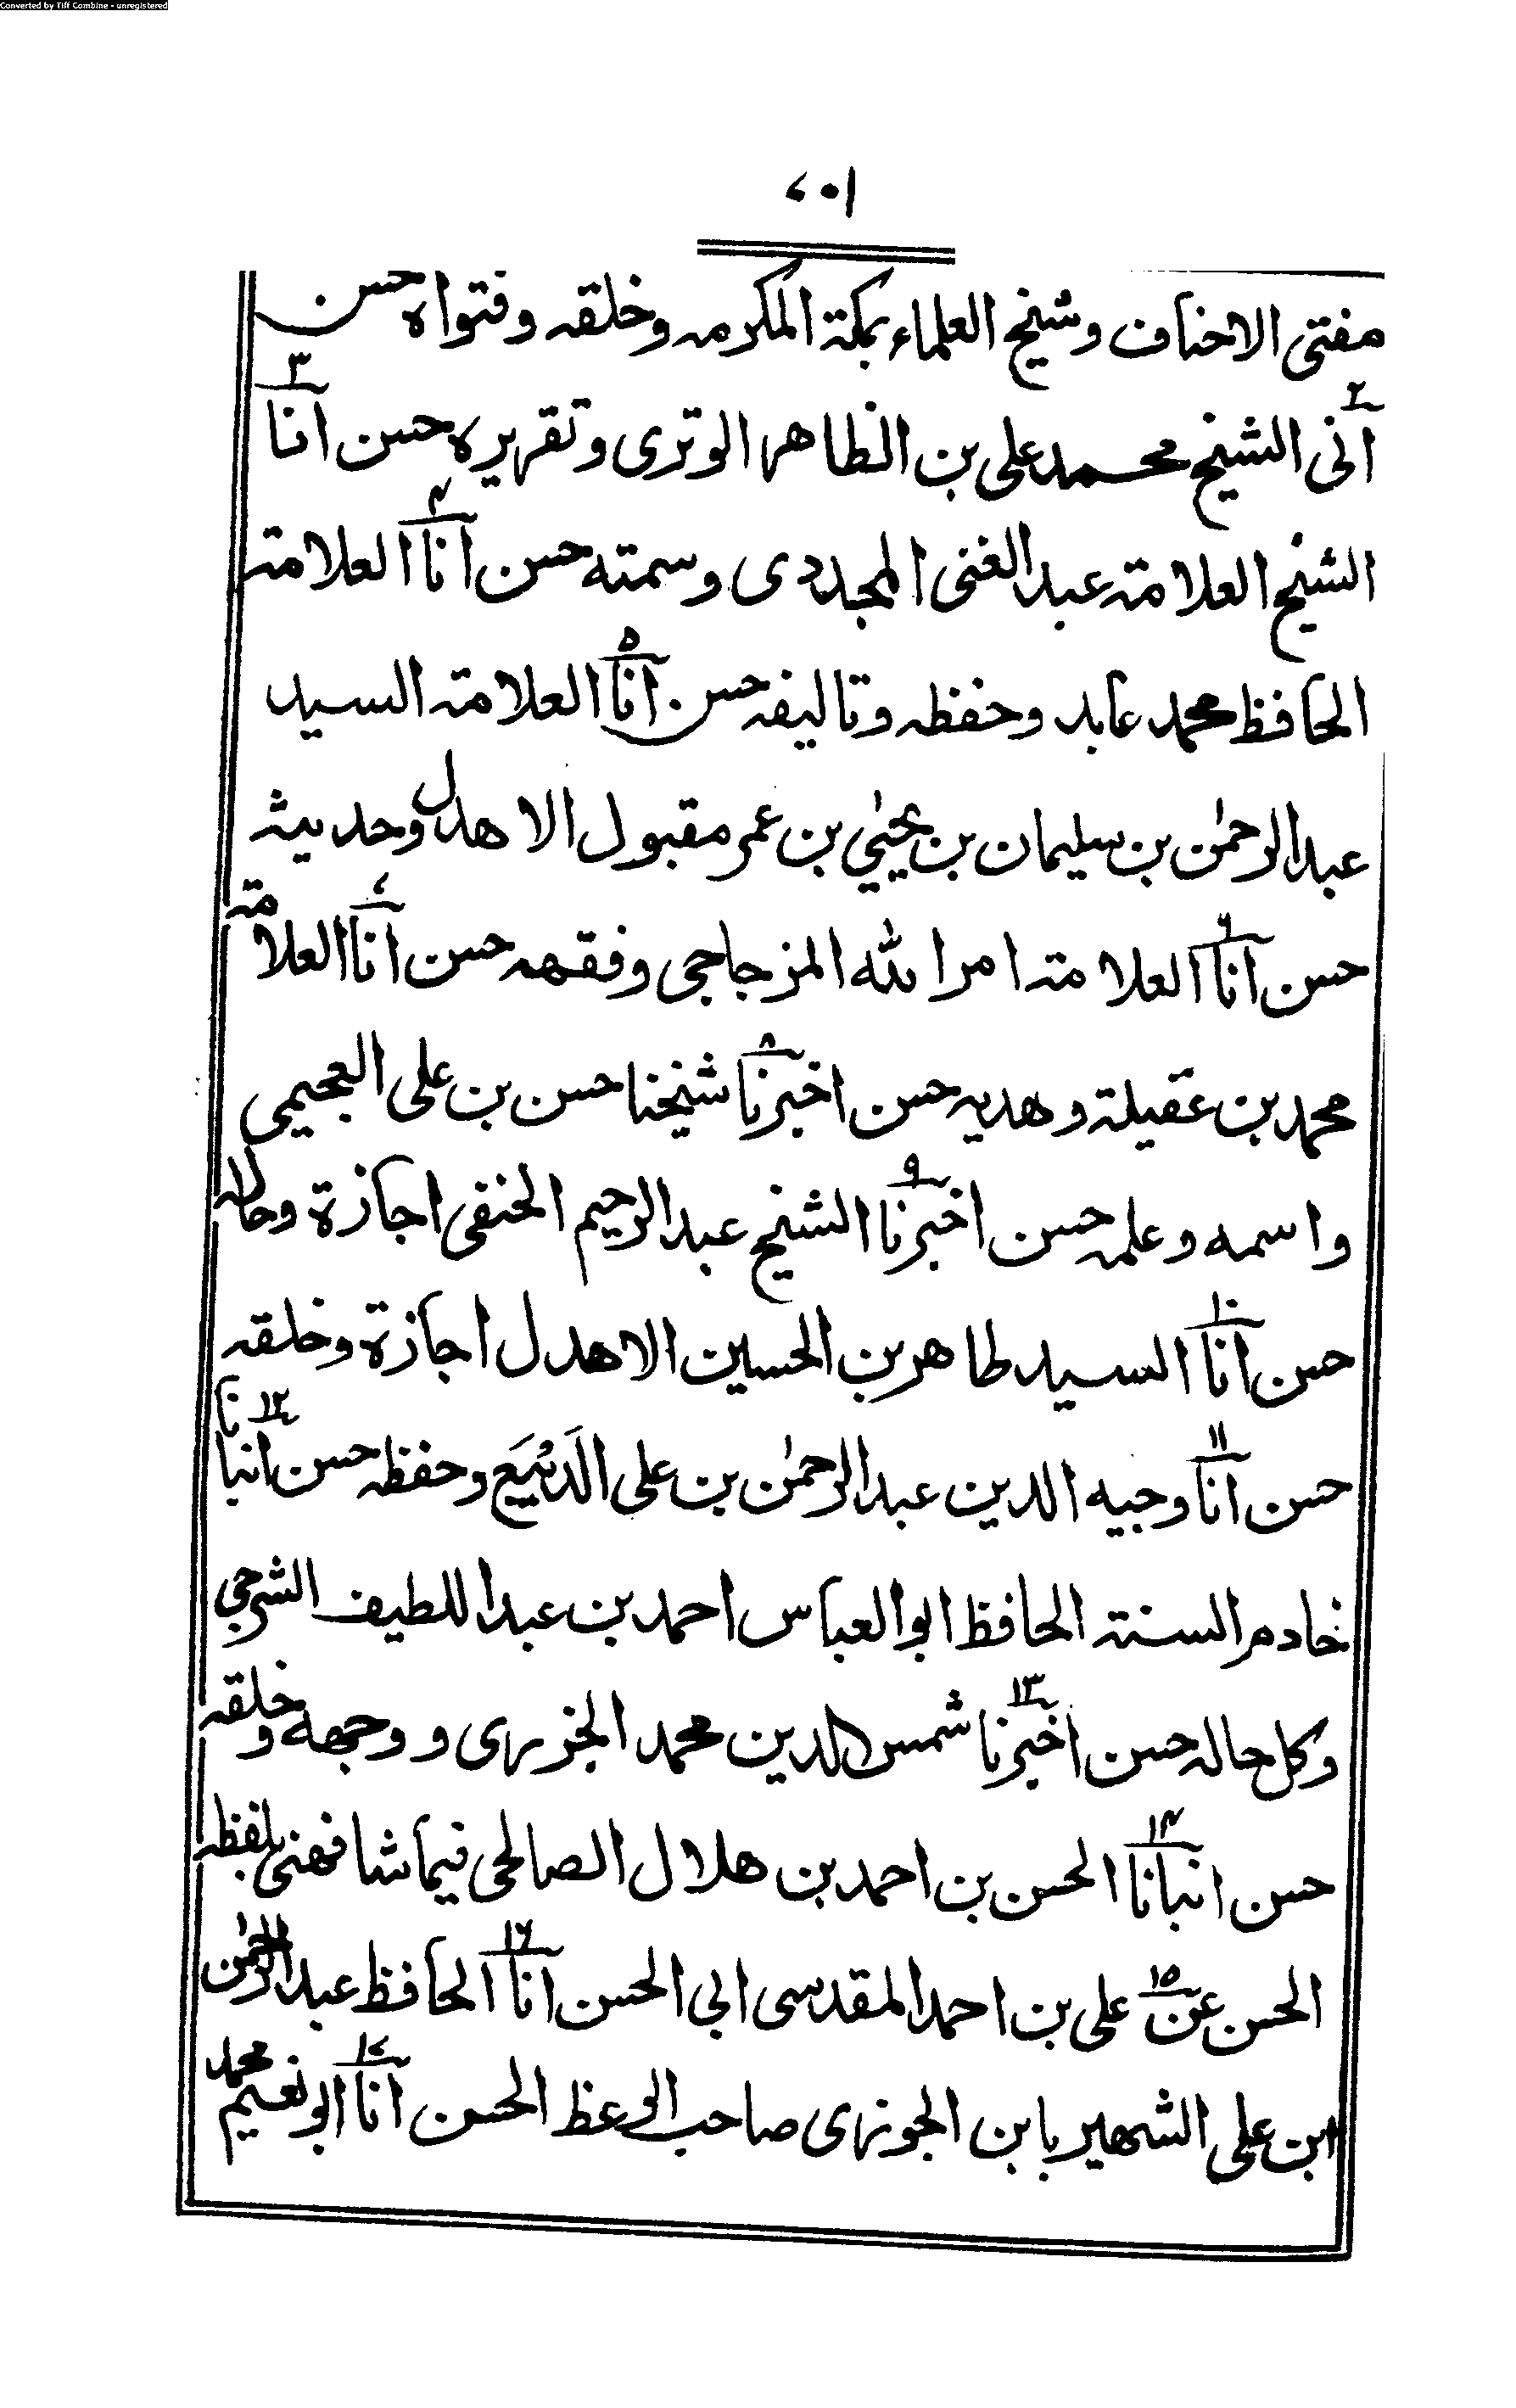 Converted by Tiff Combine - unregistered
۷۰۱
مفتی الاحناف وشیخ العلماء بمکة المکرمه وخلقه وفتواه حسن
۲ انی الشیخ محمد علی بن الظاهر الوتری وتقریره حسن انا ۳
الشیخ العلامة عبد الغنی المجددی وسمته حسن انا ۴ العلامة
الحافظ محمد عابد وحفظه وتالیفه حسن انا ۵ العلامة السید
عبد الرحمٰن بن سلیمان بن یحیٰی بن عمر مقبول الاهدل وحدیثه
حسن انا ۶ العلامة امر الله المزجاجی وفقهه حسن انا ۷ العلامة
محمد بن عقیلة وهدیه حسن اخبرنا ۸ شیخنا حسن بن علی العجیمی
واسمه وعلمه حسن اخبرنا ۹ الشیخ عبد الرحیم الحنفی اجازة وحاله
حسن انا ۱۰ السید طاهر بن الحسین الاهدل اجازة وخلقه
حسن انا ۱۱ وجیه الدین عبد الرحمٰن بن علی الدَیْبَع وحفظه حسن انبانا ۱۲
خادم السنة الحافظ ابو العباس احمد بن عبد اللطیف الشرجی
وکل حاله حسن اخبرنا ۱۳ شمس الدین محمد الجزری و وجهه وخلقه
حسن انبانا ۱۴ الحسن بن احمد بن هلال الصالحی فیما شافهنی بلفظه
الحسن عن ۱۵ علی بن احمد المقدسی ابی الحسن انا ۱۶ الحافظ عبد الرحمٰن
ابن علی الشهیر بابن الجوزی صاحب الوعظ الحسن انا ۱۷ ابو نعیم محمد